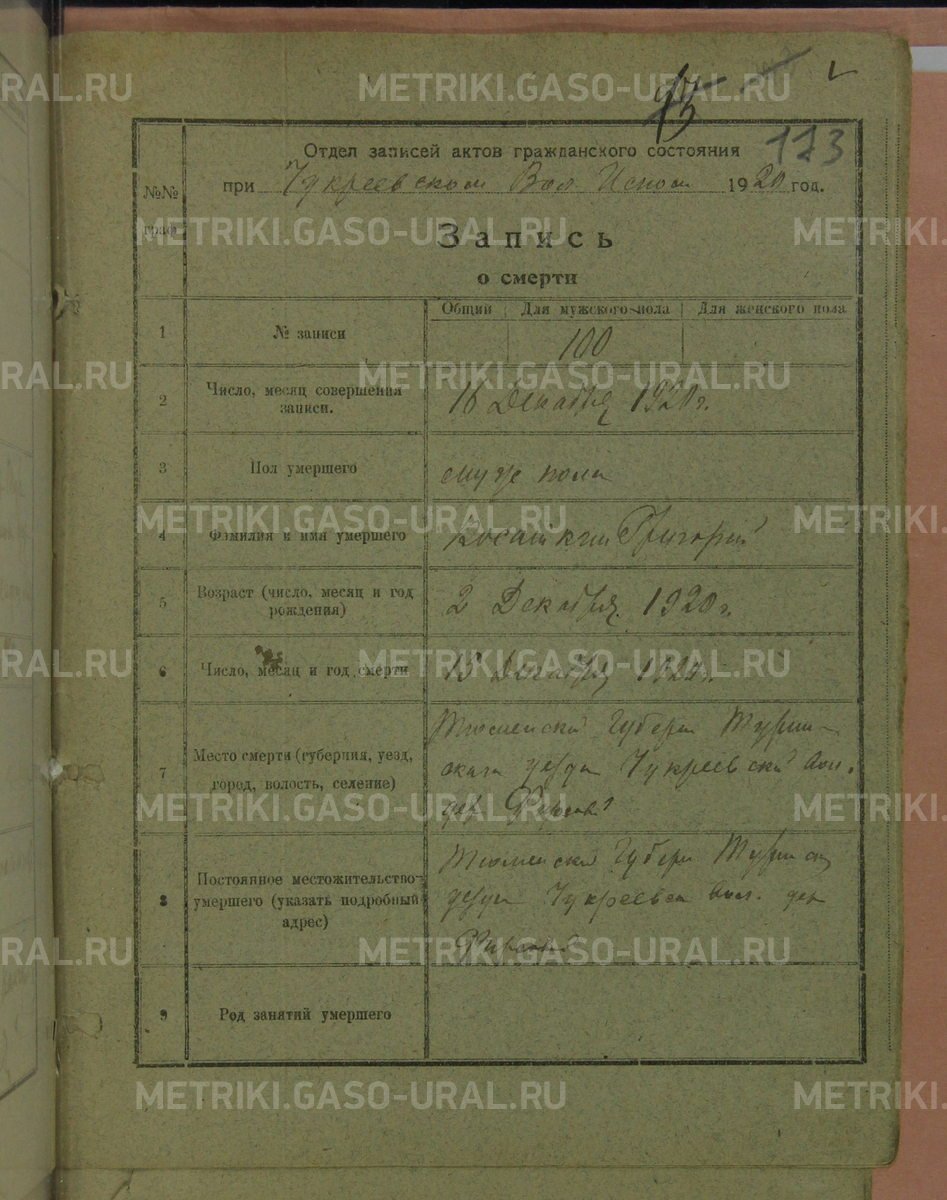 173
Отдел записей актов гражданского состояния
при Чукреевском Вол Испол 1920 год.
№№ граф
Запись
о смерти
Общий Для мужского пола Для женского пола
1 № записи 100
2 Число, месяц совершения записи. 16 Декабря 1920 г.
3 Пол умершего муж пола
4 Фамилия и имя умершего Григорий
5 Возраст (число, месяц и год рождения) 2 Декабря 1920 г.
6 Число, месяц и год смерти 15 Декабря 1920 г.
7 Место смерти (губерния, уезд, город, волость, селение) Тюменской Губерн Турин-
скаго уезда Чукреевской вол.
дер
8 Постоянное местожительство умершего (указать подробный адрес) Тюменской Губерн Туринск
уезда Чукреевск вол. дер
9 Род занятий умершего
METRIKI.GASO-URAL.RU